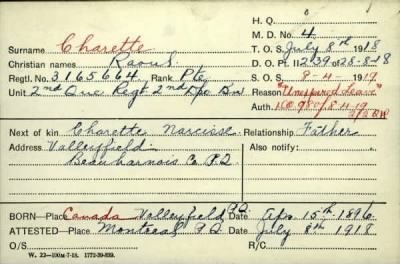 H. Q.
M. D. No. 4
Surname Charette
Christian names Raoul.
T. O. S. July 8th 1918
Regtl. No. 3165664 Rank Pte
D. O. Pt. II 239 of 28-8-18
Unit 2nd Que Regt 2nd Dpo Bn
S. O. S. 8-4-1919
Reason "Unexpired Leave"
Auth.
Next of kin Charette Narcisse Relationship Father
Address Valleyfield
Also notify:
Beauharnois Co P.Q.
BORN—Place Canada Valleyfield P.Q. Date Apr. 15th 1896
ATTESTED—Place Montreal P.Q Date July 8th 1918
O/S R/C
W. 22—100M-7-18. 1772-39-839.